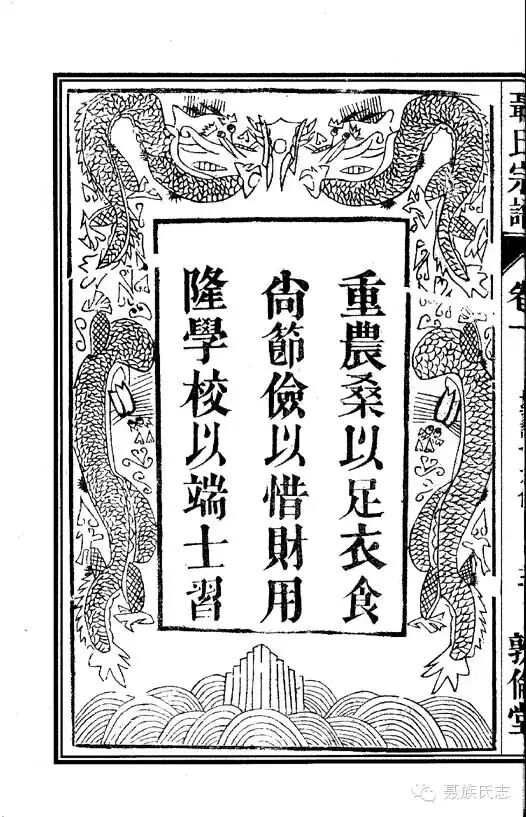 重農桑以足衣食
尙節儉以惜財用
隆學校以端士習
聶氏宗譜
卷一
敦倫堂
聂族氏志